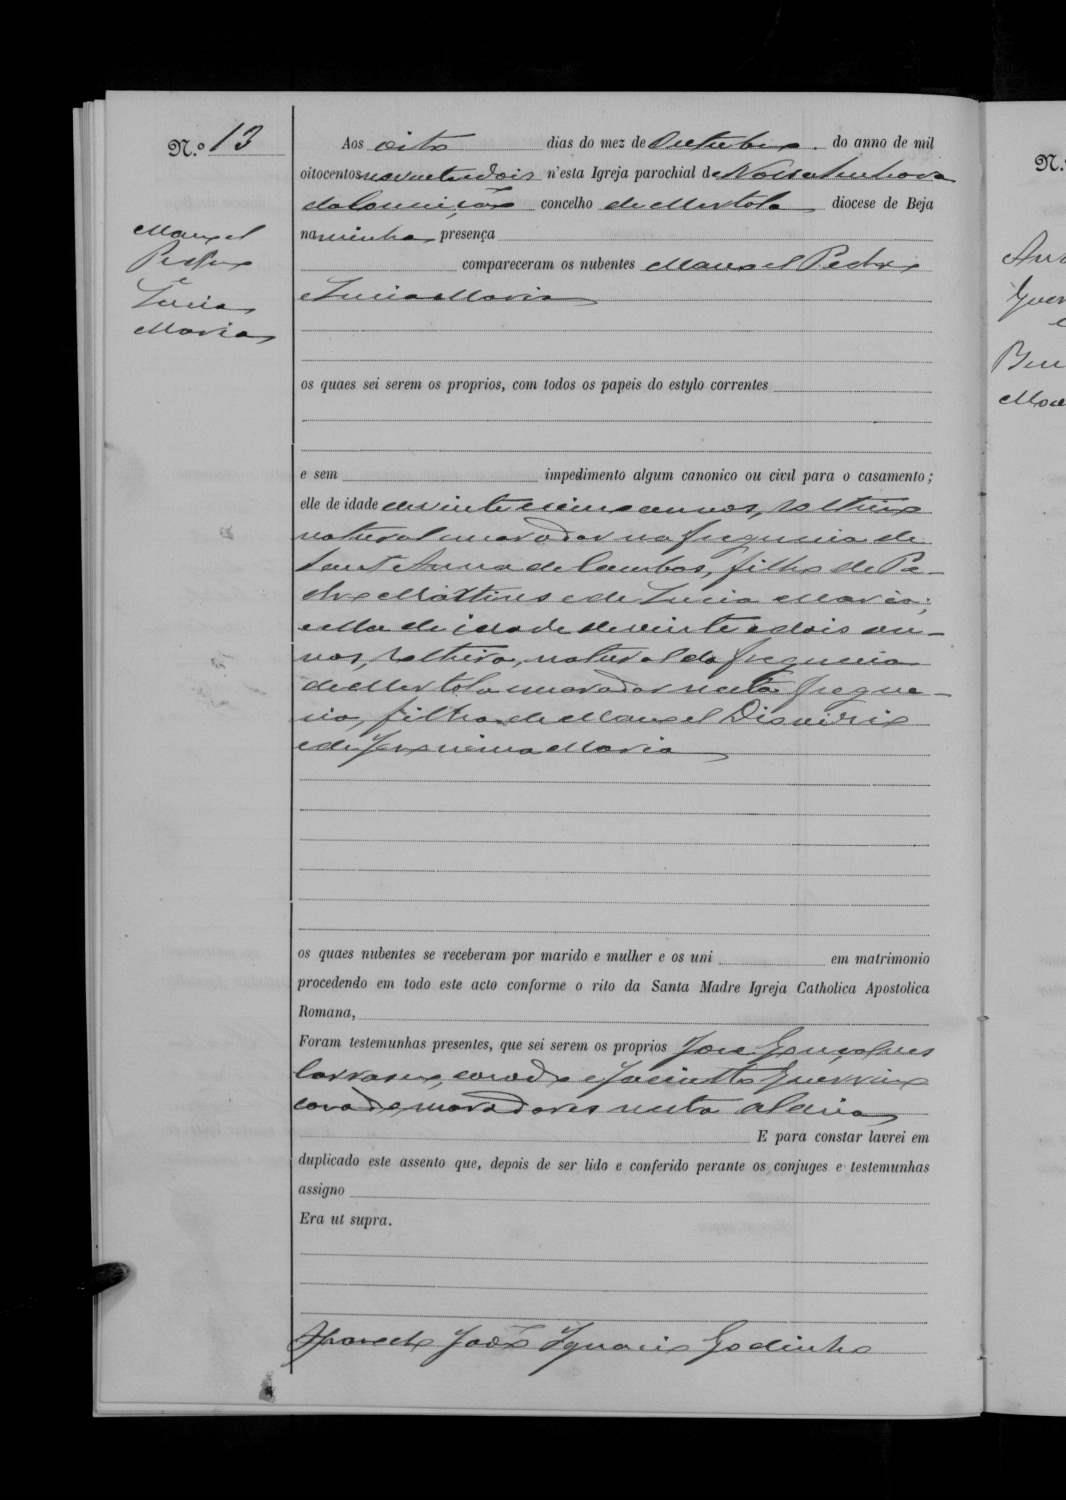 N.º 13
Manoel
Pedro
e
Lucia
Maria
Aos oito dias do mez de Outubro do anno de mil
oitocentos noventa e dois n'esta Igreja parochial de Nossa Senhora
da Conceição concelho de Mertola diocese de Beja
na minha presença
compareceram os nubentes Manoel Pedro
e Lucia Maria
os quaes sei serem os proprios, com todos os papeis do estylo correntes
e sem impedimento algum canonico ou civil para o casamento;
elle de idade de vinte e cinco annos, solteiro
natural e morador na freguesia de
Sant Anna de Cambas, filho de Pe-
dro Martins e de Lucia Maria;
e ella de idade de vinte e dois an-
nos, solteira, natural da freguesia
de Mertola moradora nesta fregue-
sia, filha de Manoel
e de Maria
os quaes nubentes se receberam por marido e mulher e os uni em matrimonio
procedendo em todo este acto conforme o rito da Santa Madre Igreja Catholica Apostolica
Romana,
Foram testemunhas presentes, que sei serem os proprios José Gonçalves
casado e Jacintho Guerreiro
casado moradores nesta aldeia
E para constar lavrei em
duplicado este assento que, depois de ser lido e conferido perante os conjuges e testemunhas
assigno
Era ut supra.
João Ignacio Godinho
N.
Guer
e